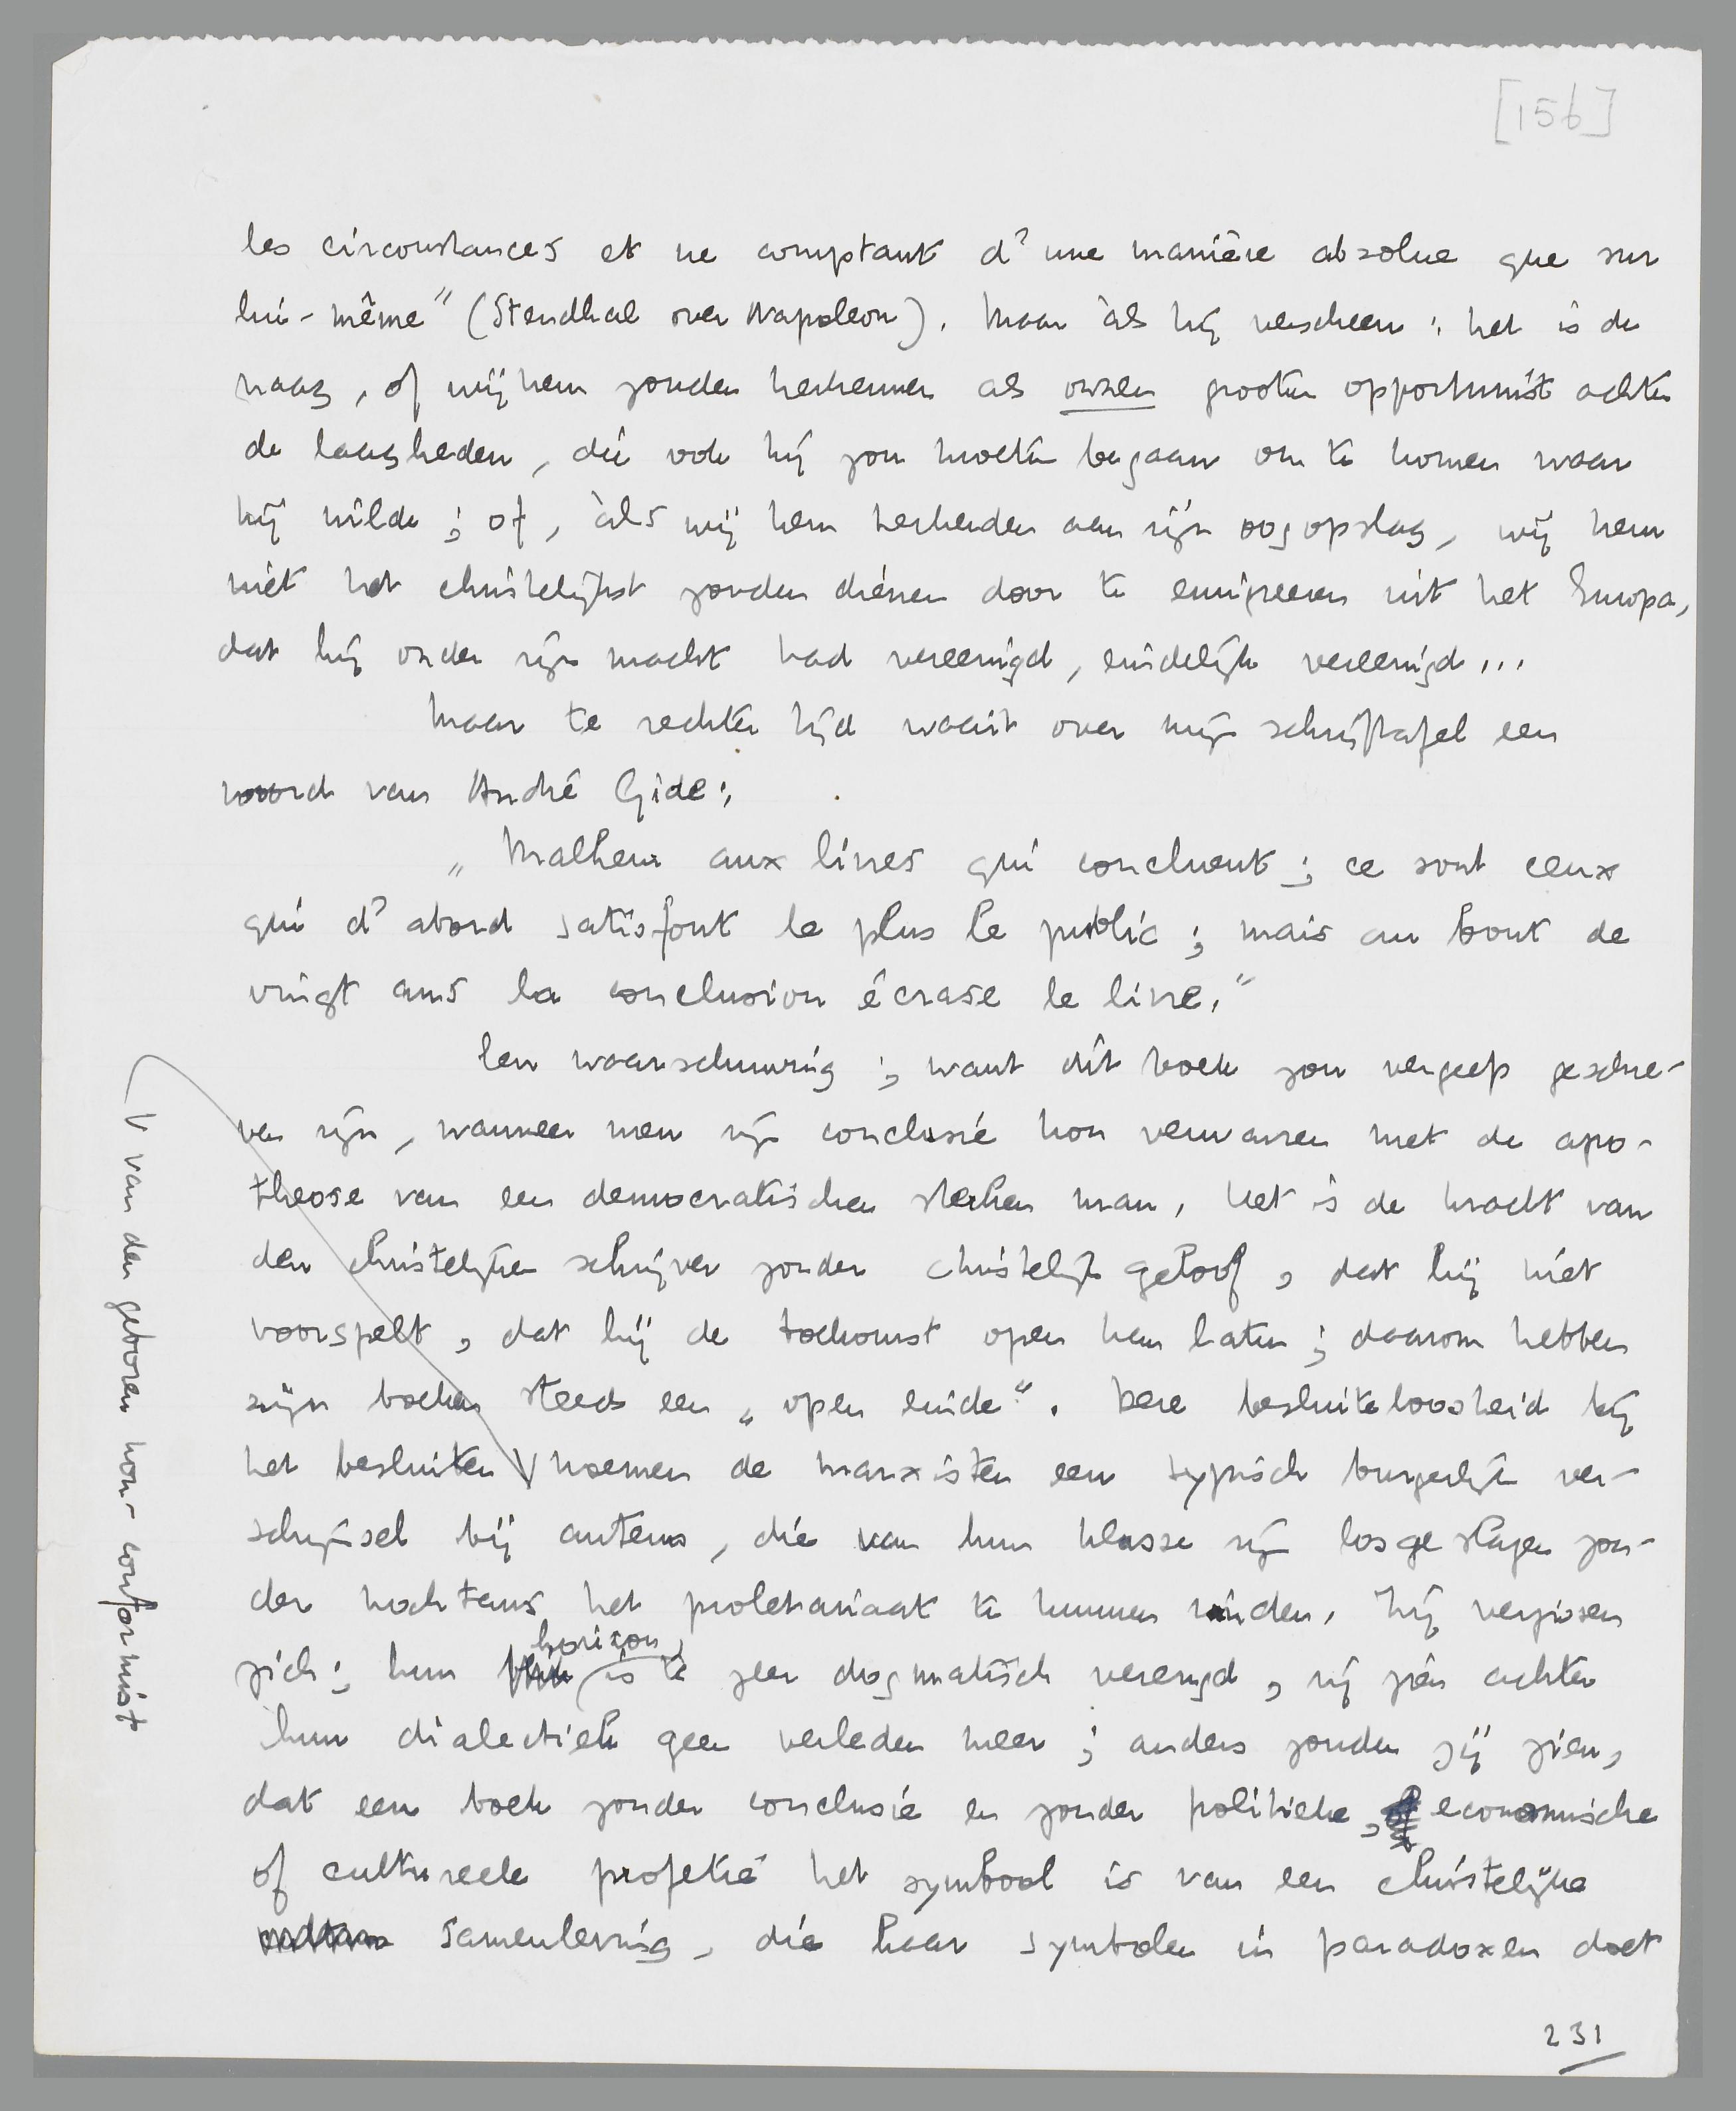 [156]
les circonstances et ne comptant d'une manière absolue que sur
lui-même" (Stendhal over Napoleon). Maar àls hij verscheen: het is de
vraag, of wij hem zouden herkennen als onzen grooten opportunist achter
de laagheden, die ook hij zou moeten begaan om te komen waar
hij wilde; of, àls wij hem herkenden aan zijn oogopslag, wij hem
niet het christelijkst zouden dienen door te emigreeren uit het Europa,
dat hij onder zijn macht had vereenigd, eindelijk vereenigd...
Maar te rechter tijd waait over mijn schrijftafel een
woord van André Gide:
„Malheur aux livres qui concluent; ce sont ceux
qui d'abord satisfont le plus le public; mais au bout de
vingt ans la conclusion écrase le livre."
Een waarschuwing; want dit boek zou vergeefs geschre-
ven zijn, wanneer men zijn conclusie kon verwarren met de apo-
theose van een democratischen sterken man. Het is de kracht van
den christelijken schrijver zonder christelijk geloof, dat hij niet
voorspelt, dat hij de toekomst open kan laten; daarom hebben
zijn boeken steeds een „open einde". Deze besluiteloosheid bij
het besluiten V noemen de marxisten een typisch burgerlijk ver-
schijnsel bij auteurs, die van hun klasse zijn losgeslagen zon-
der nochtans het proletariaat te kunnen vinden. Zij vergissen
zich; hun horizon is te zeer dogmatisch verengd, zij zien achter
hun dialectiek geen verleden meer; anders zouden zij zien,
dat een boek zonder conclusie en zonder politieke, economische
of cultureele profetie het symbool is van een christelijke
samenleving, die haar symbolen in paradoxen doet
V van den geboren non-conformist
231